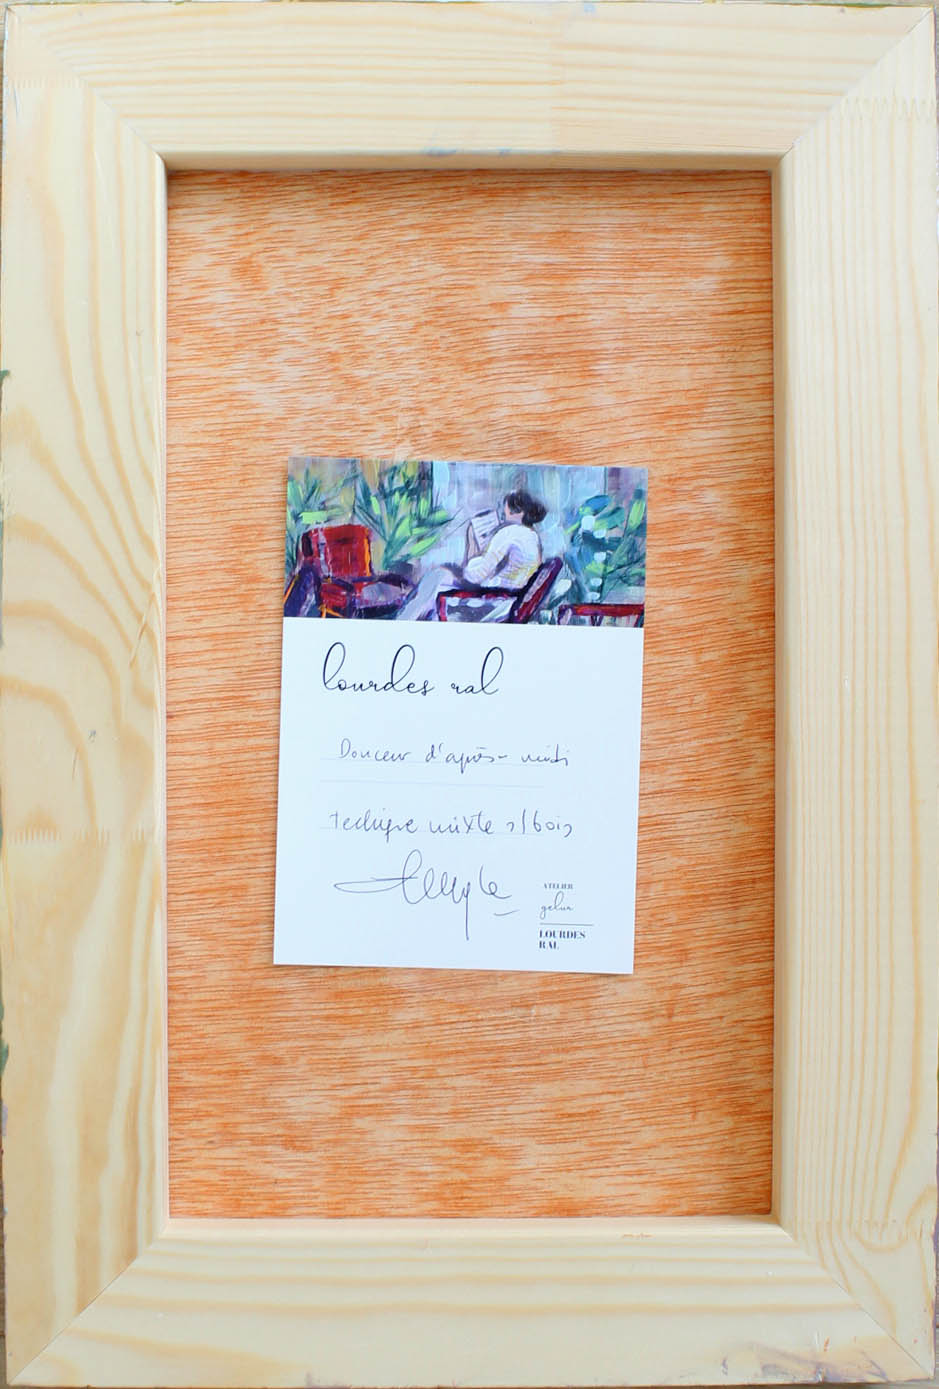 lourdes ral
Douceur d'après-midi
technique mixte s/bois
ATELIER
gelur
LOURDES
RAL